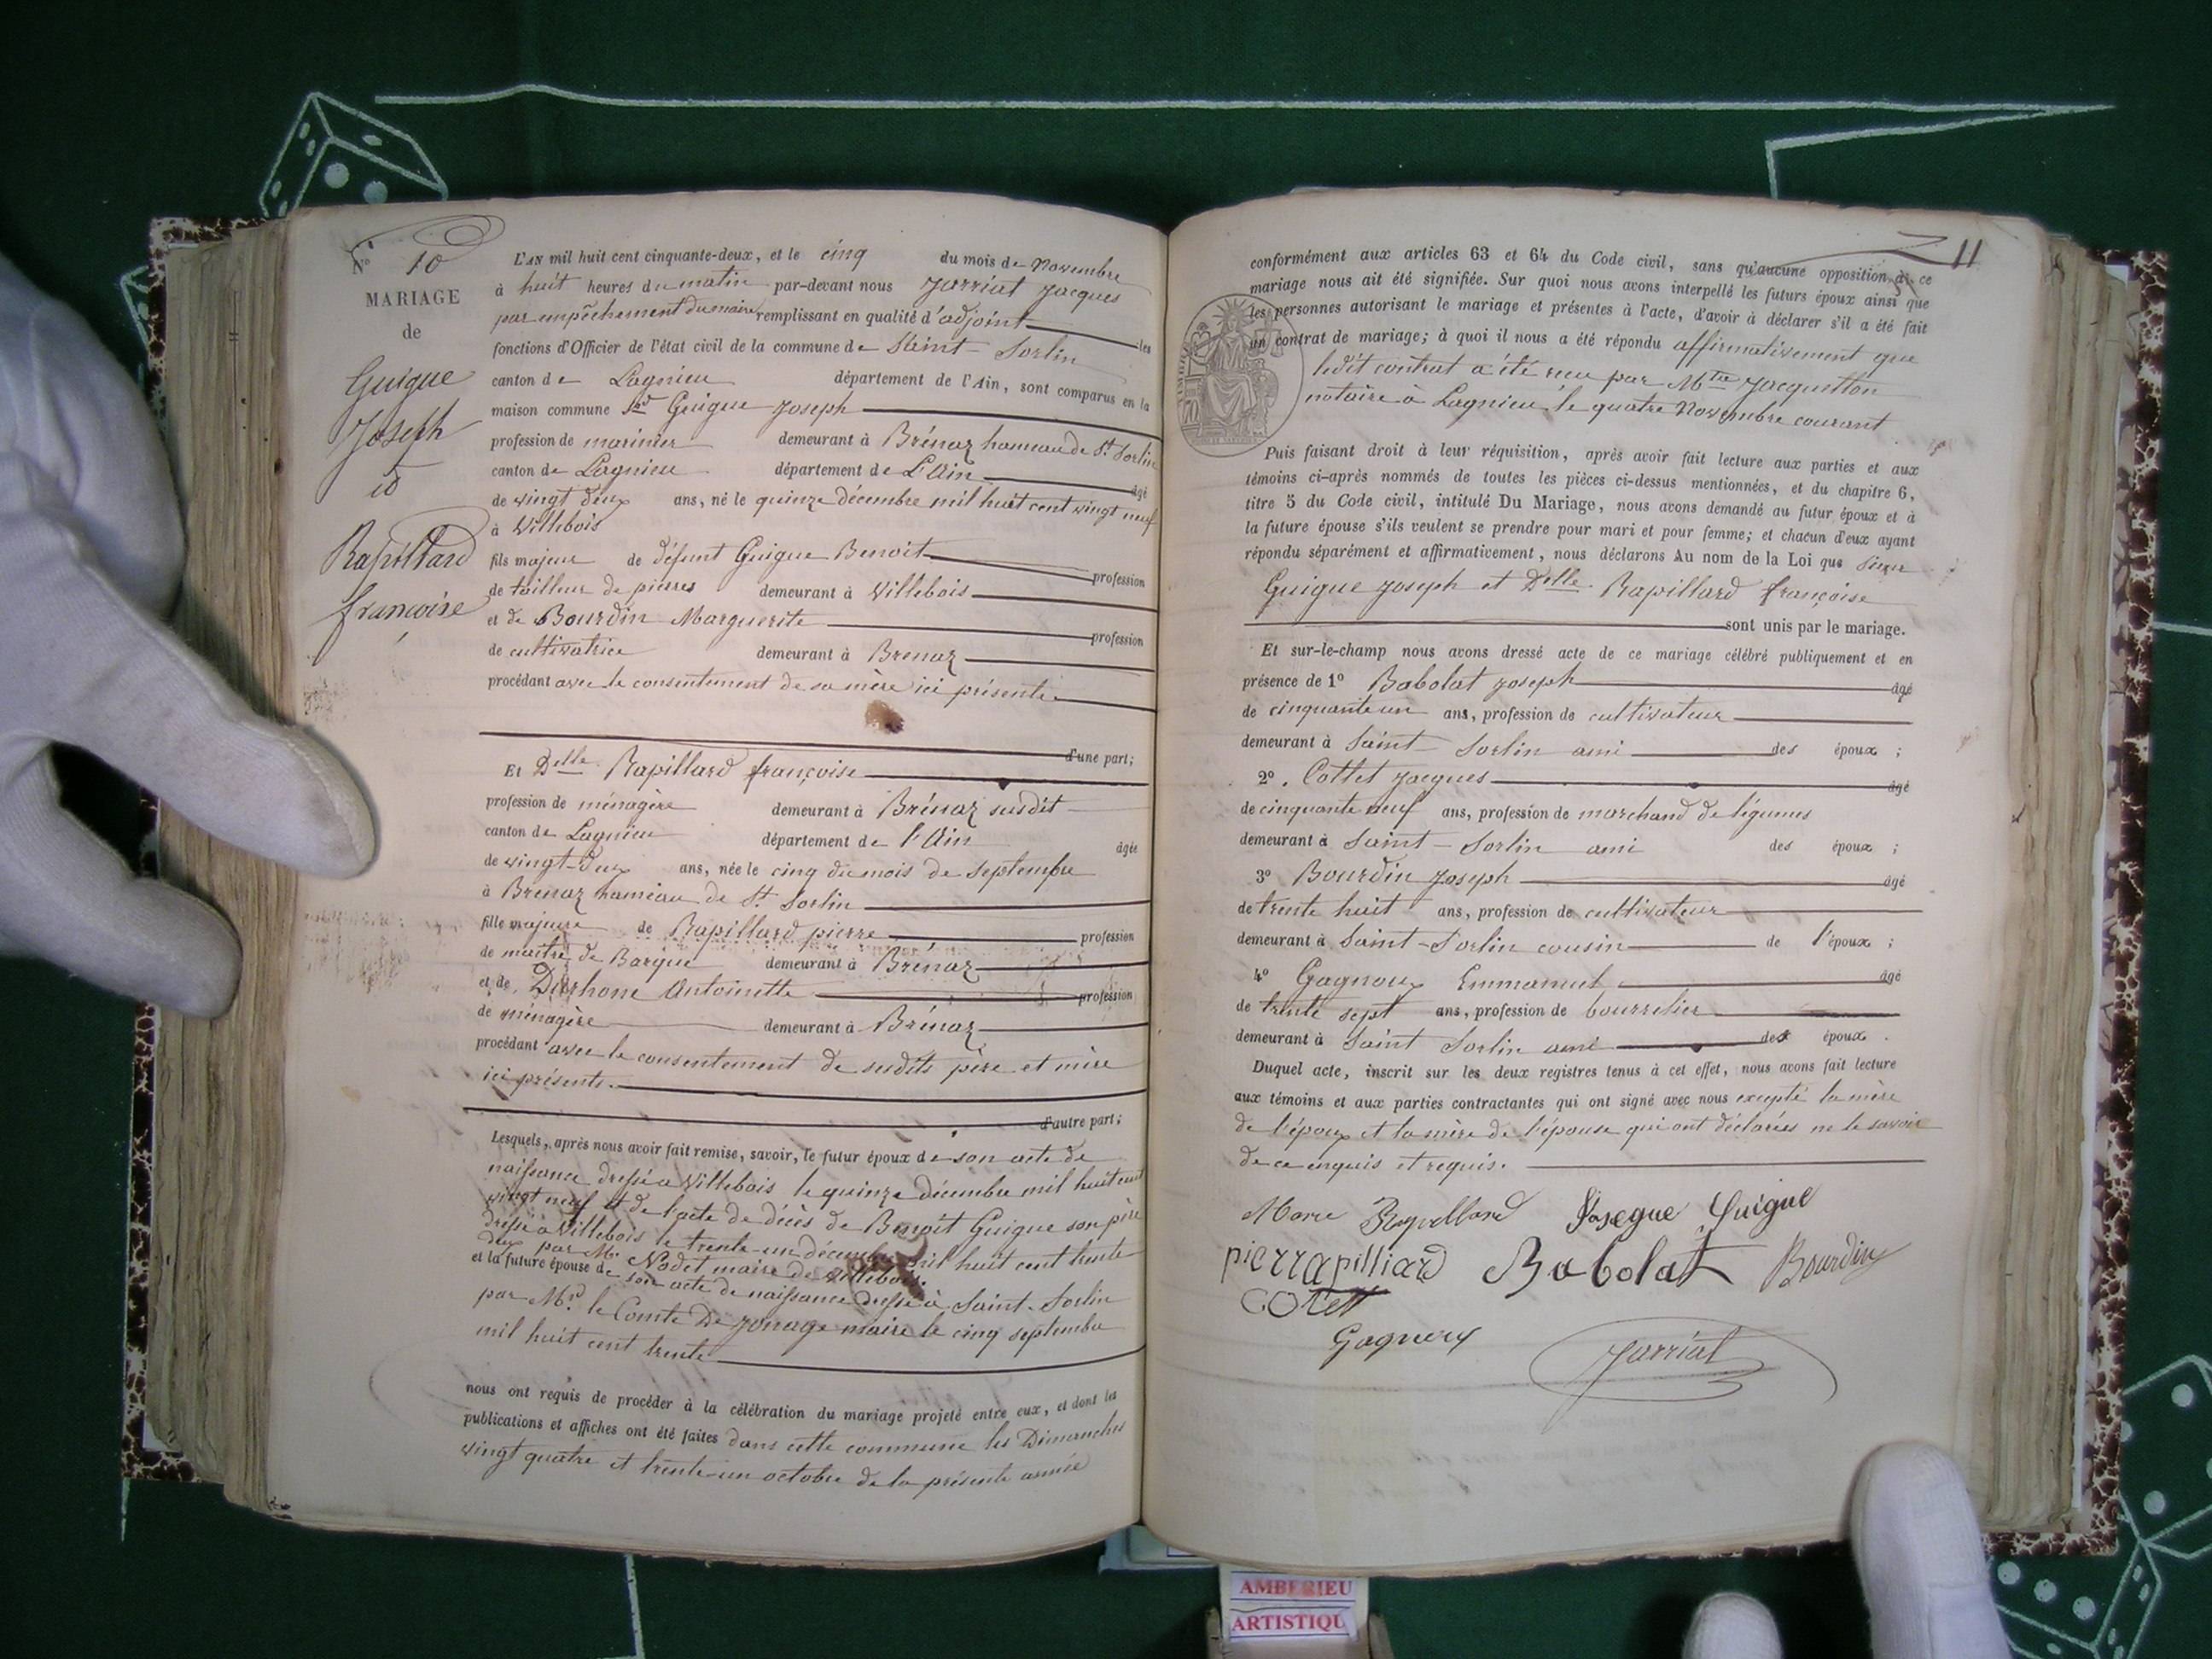 N° 10
MARIAGE
de
Guigue
Joseph
et
Rapillard
françoise
L'AN mil huit cent cinquante-deux, et le cinq du mois de Novembre
à huit heures du matin par-devant nous Jarriat Jacques
par empêchement du maire remplissant en qualité d'adjoint les
fonctions d'Officier de l'état civil de la commune de Saint-Sorlin
canton de Lagnieu département de l'Ain, sont comparus en la
maison commune Guigue Joseph
profession de marinier demeurant à Brénaz hameau de St Sorlin
canton de Lagnieu département de L'Ain âgé
de vingt deux ans, né le quinze décembre mil huit cent vingt neuf
à Villebois
fils majeur de défunt Guigue Benoit profession
de tailleur de pierres demeurant à Villebois
et de Bourdin Marguerite profession
de cultivatrice demeurant à Brenaz
procédant avec le consentement de sa mère ici présente
d'une part;
Et Delle Rapillard françoise
profession de ménagère demeurant à Brénaz susdit
canton de Lagnieu département de l'Ain âgée
de vingt-deux ans, née le cinq du mois de septembre
à Brenaz hameau de St Sorlin
fille majeure de Rapillard pierre profession
de maitre de Barque demeurant à Brénaz
et de Antoinette profession
de ménagère demeurant à Brénaz
procédant avec le consentement de susdits père et mère
ici présents.
d'autre part;
Lesquels, après nous avoir fait remise, savoir, le futur époux de son acte de
naissance dressé à Villebois le quinze décembre mil huit cent
vingt neuf et de l'acte de décès de Benoit Guigue son père
dressé à Villebois le trente-un décembre mil huit cent trente
deux par Mr Nodet maire de Villebois.
et la future épouse de son acte de naissance dressé à Saint-Sorlin
par Mr le Comte De Jonage maire le cinq septembre
mil huit cent trente
nous ont requis de procéder à la célébration du mariage projeté entre eux, et dont les
publications et affiches ont été faites dans cette commune les Dimanches
vingt quatre et trente-un octobre de la présente année
11
conformément aux articles 63 et 64 du Code civil, sans qu'aucune opposition à ce
mariage nous ait été signifiée. Sur quoi nous avons interpellé les futurs époux ainsi que
les personnes autorisant le mariage et présentes à l'acte, d'avoir à déclarer s'il a été fait
un contrat de mariage; à quoi il nous a été répondu affirmativement que
ledit contrat a été reçu par Mtre Jacquitton
notaire à Lagnieu le quatre Novembre courant
Puis faisant droit à leur réquisition, après avoir fait lecture aux parties et aux
témoins ci-après nommés de toutes les pièces ci-dessus mentionnées, et du chapitre 6,
titre 5 du Code civil, intitulé Du Mariage, nous avons demandé au futur époux et à
la future épouse s'ils veulent se prendre pour mari et pour femme; et chacun d'eux ayant
répondu séparément et affirmativement, nous déclarons Au nom de la Loi que Sieur
Guigue Joseph et Delle Rapillard françoise
sont unis par le mariage.
Et sur-le-champ nous avons dressé acte de ce mariage célébré publiquement et en
présence de 1° Babolat Joseph âgé
de cinquante un ans, profession de cultivateur
demeurant à Saint-Sorlin ami des époux ;
2°. Cottet Jacques âgé
de cinquante neuf ans, profession de marchand de légumes
demeurant à Saint-Sorlin ami des époux ;
3° Bourdin Joseph âgé
de trente huit ans, profession de cultivateur
demeurant à Saint-Sorlin cousin de l'époux ;
4° Gagnoux Emmanuel âgé
de trente sept ans, profession de bourrelier
demeurant à Saint Sorlin ami des époux.
Duquel acte, inscrit sur les deux registres tenus à cet effet, nous avons fait lecture
aux témoins et aux parties contractantes qui ont signé avec nous excepté la mère
de l'époux et la mère de l'épouse qui ont déclarées ne le savoir
de ce enquis et requis.
Marie Rapillard Guigue
Babolat Bourdin
Cotett
Jarriat
AMBERIEU
ARTISTIQU